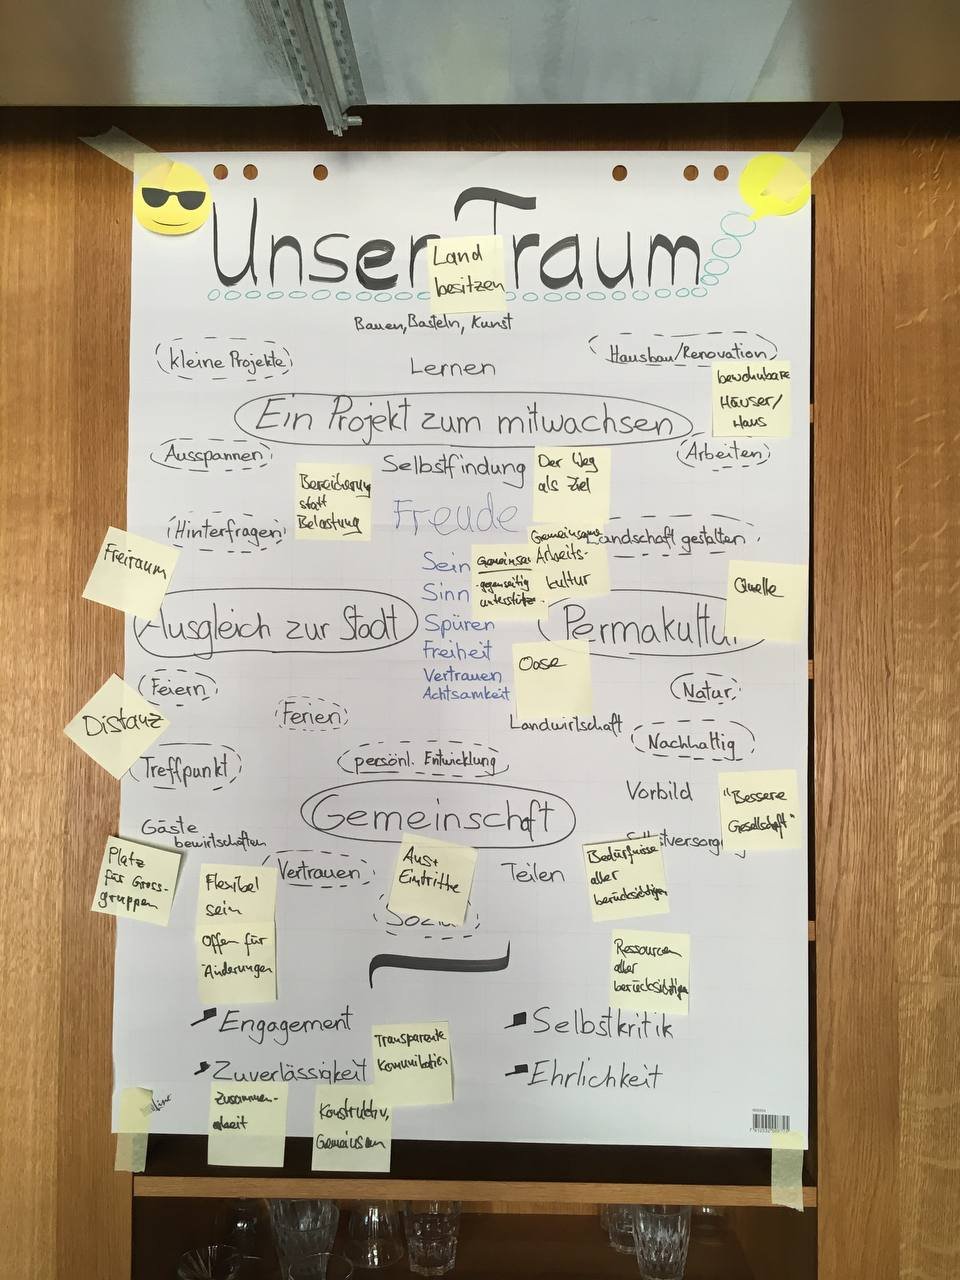 Unser Traum
Land
besitzen
Bauen, Basteln, Kunst
kleine Projekte
Lernen
Hausbau/Renovation
bewohnbare
Häuser/
Haus
Ein Projekt zum mitwachsen
Ausspannen
Selbstfindung
Der Weg
als Ziel
Arbeiten
Bereicherung
statt
Belastung
Freude
Hinterfragen
Landschaft gestalten
Freiraum
Gemeinsame
Arbeits-
kultur
Sein
gegenseitig
Sinn
Quelle
Ausgleich zur Stadt
Spüren
Permakultur
Freiheit
Vertrauen
Achtsamkeit
Oase
Feiern
Natur
Distanz
Ferien
Landwirtschaft
Nachhaltig
Treffpunkt
persönl. Entwicklung
Vorbild
"Bessere
Gesellschaft"
Gemeinschaft
Gäste
bewirtschaften
Platz
für Gross-
gruppen
Vertrauen
Aus+
Eintritte
Teilen
Bedürfnisse
aller
berücksichtigen
Flexibel
sein
Offen für
Änderungen
Ressourcen
aller
berücksichtigen
Engagement
Selbstkritik
Transparente
Kommunikation
Zuverlässigkeit
Ehrlichkeit
Zusammen-
arbeit
Konstruktiv,
Gemeinsam